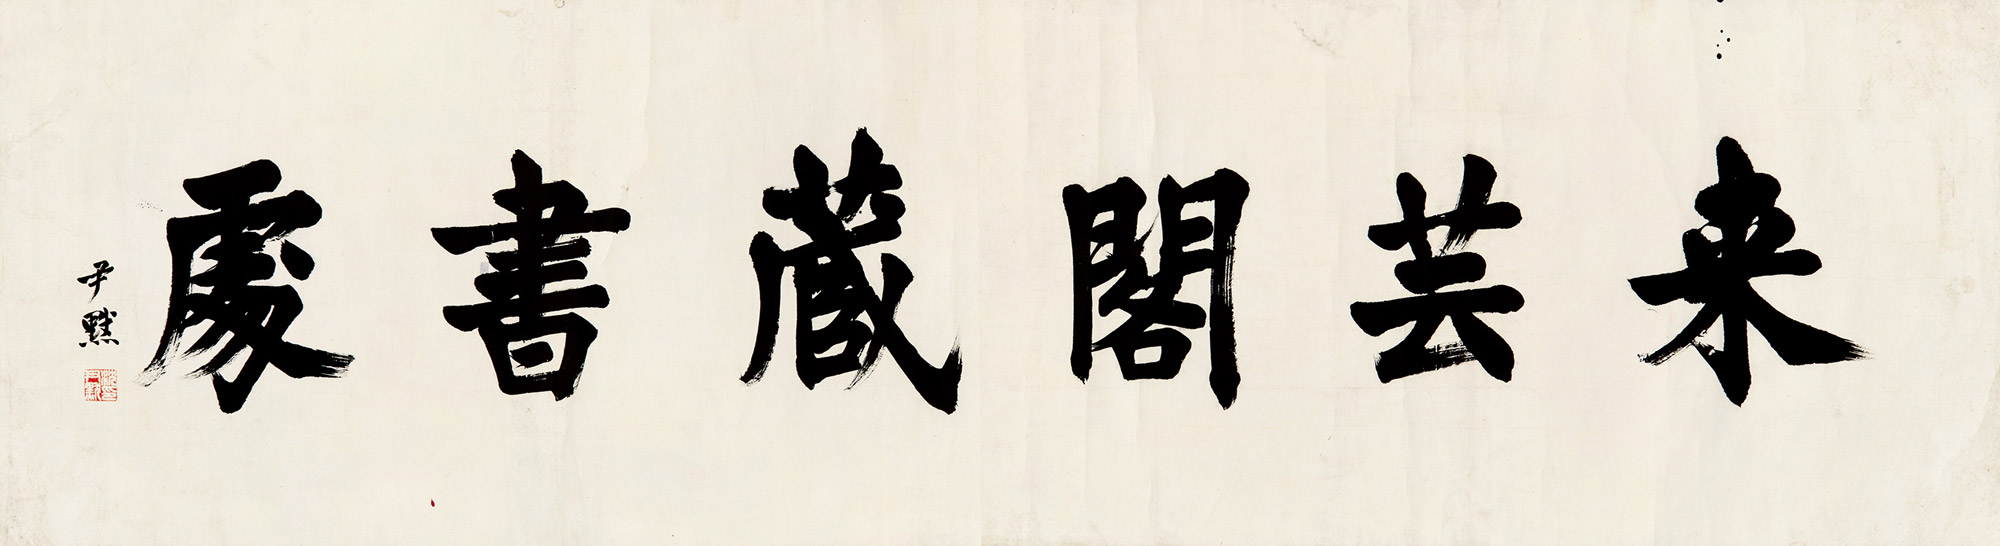 来芸閣藏書處
尹默